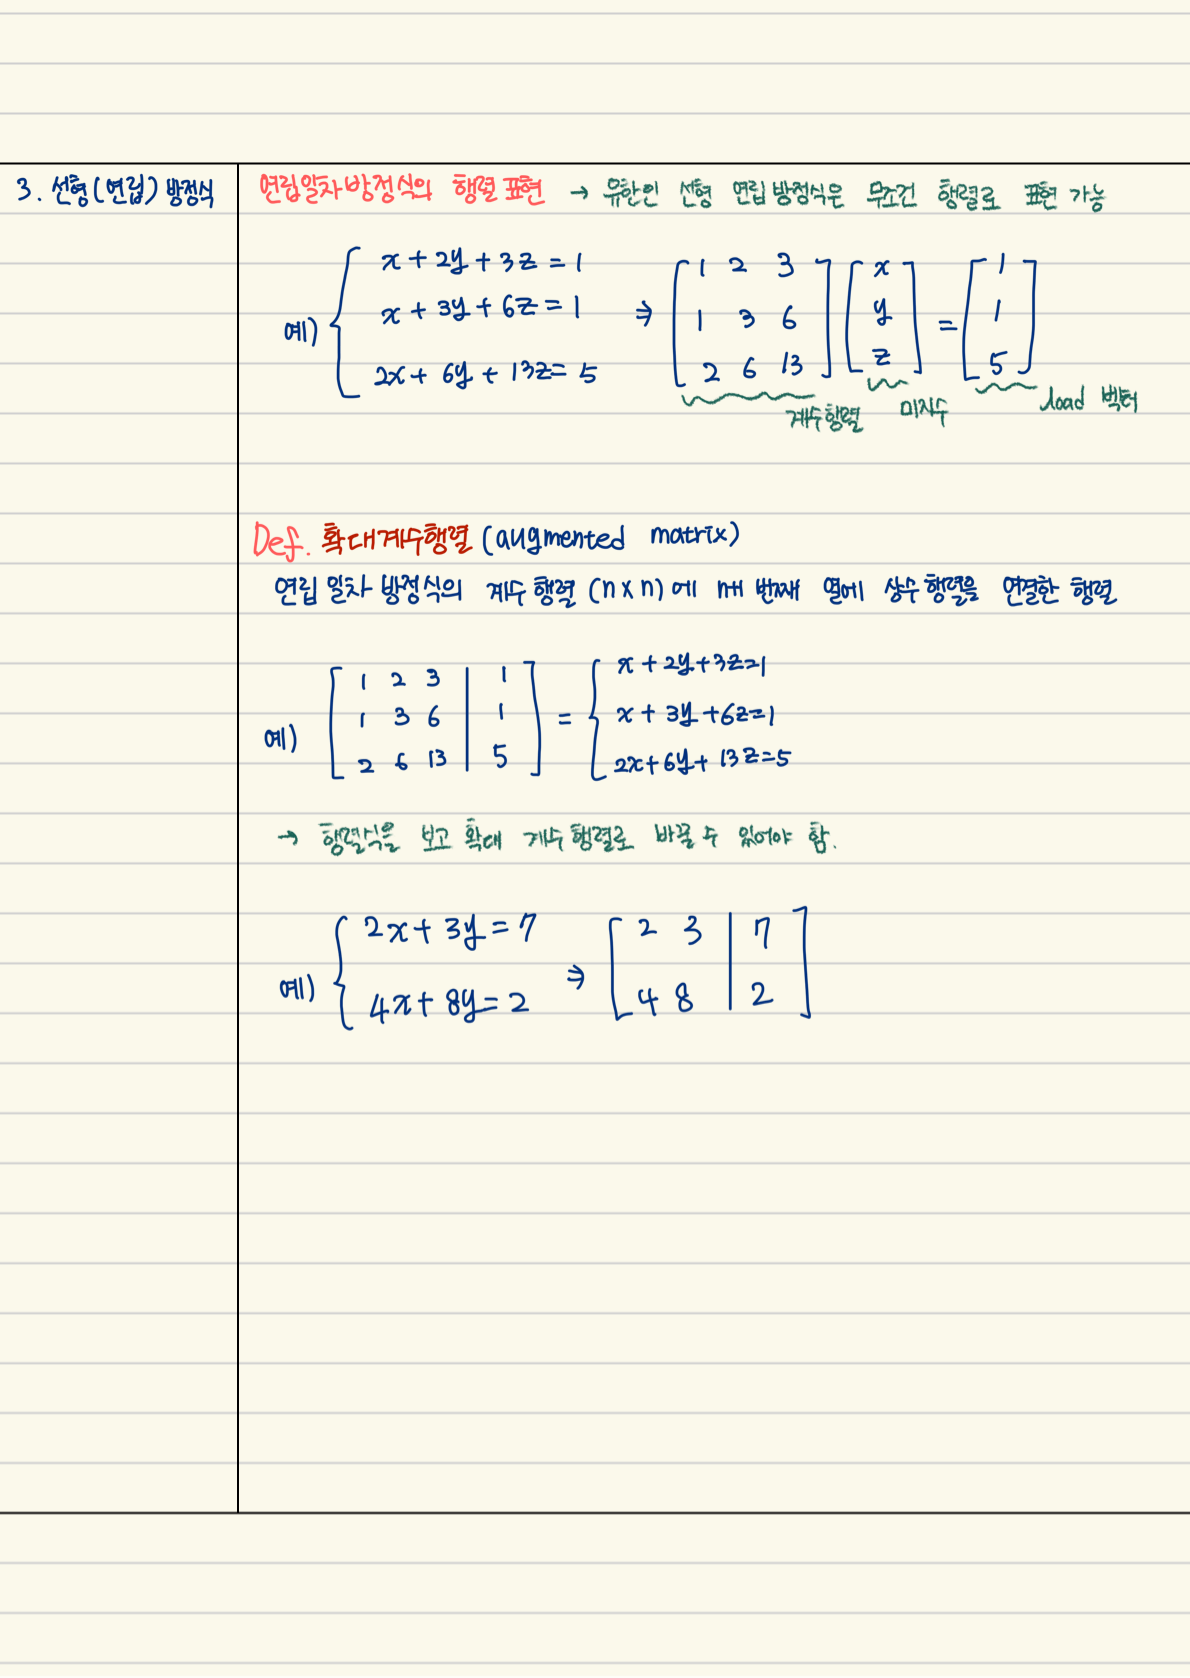 3. 선형(연립) 방정식
연립일차방정식의 행렬 표현 → 유한인 선형 연립방정식은 무조건 행렬로 표현 가능
x + 2y + 3z = 1
x + 3y + 6z = 1
2x + 6y + 13z = 5
예)
⇒
1 2 3
1 3 6
2 6 13
x
y
z
=
1
1
5
계수행렬 미지수 load 벡터
Def. 확대계수행렬 (augmented matrix)
연립 일차 방정식의 계수 행렬 (n×n)에 번째 열에 상수 행렬을 연결한 행렬
예)
1 2 3 | 1
1 3 6 | 1
2 6 13 | 5
=
x + 2y + 3z = 1
x + 3y + 6z = 1
2x + 6y + 13z = 5
→ 행렬식을 보고 확대 계수 행렬로 바꿀 수 있어야 함.
예)
2x + 3y = 7
4x + 8y = 2
⇒
2 3 | 7
4 8 | 2